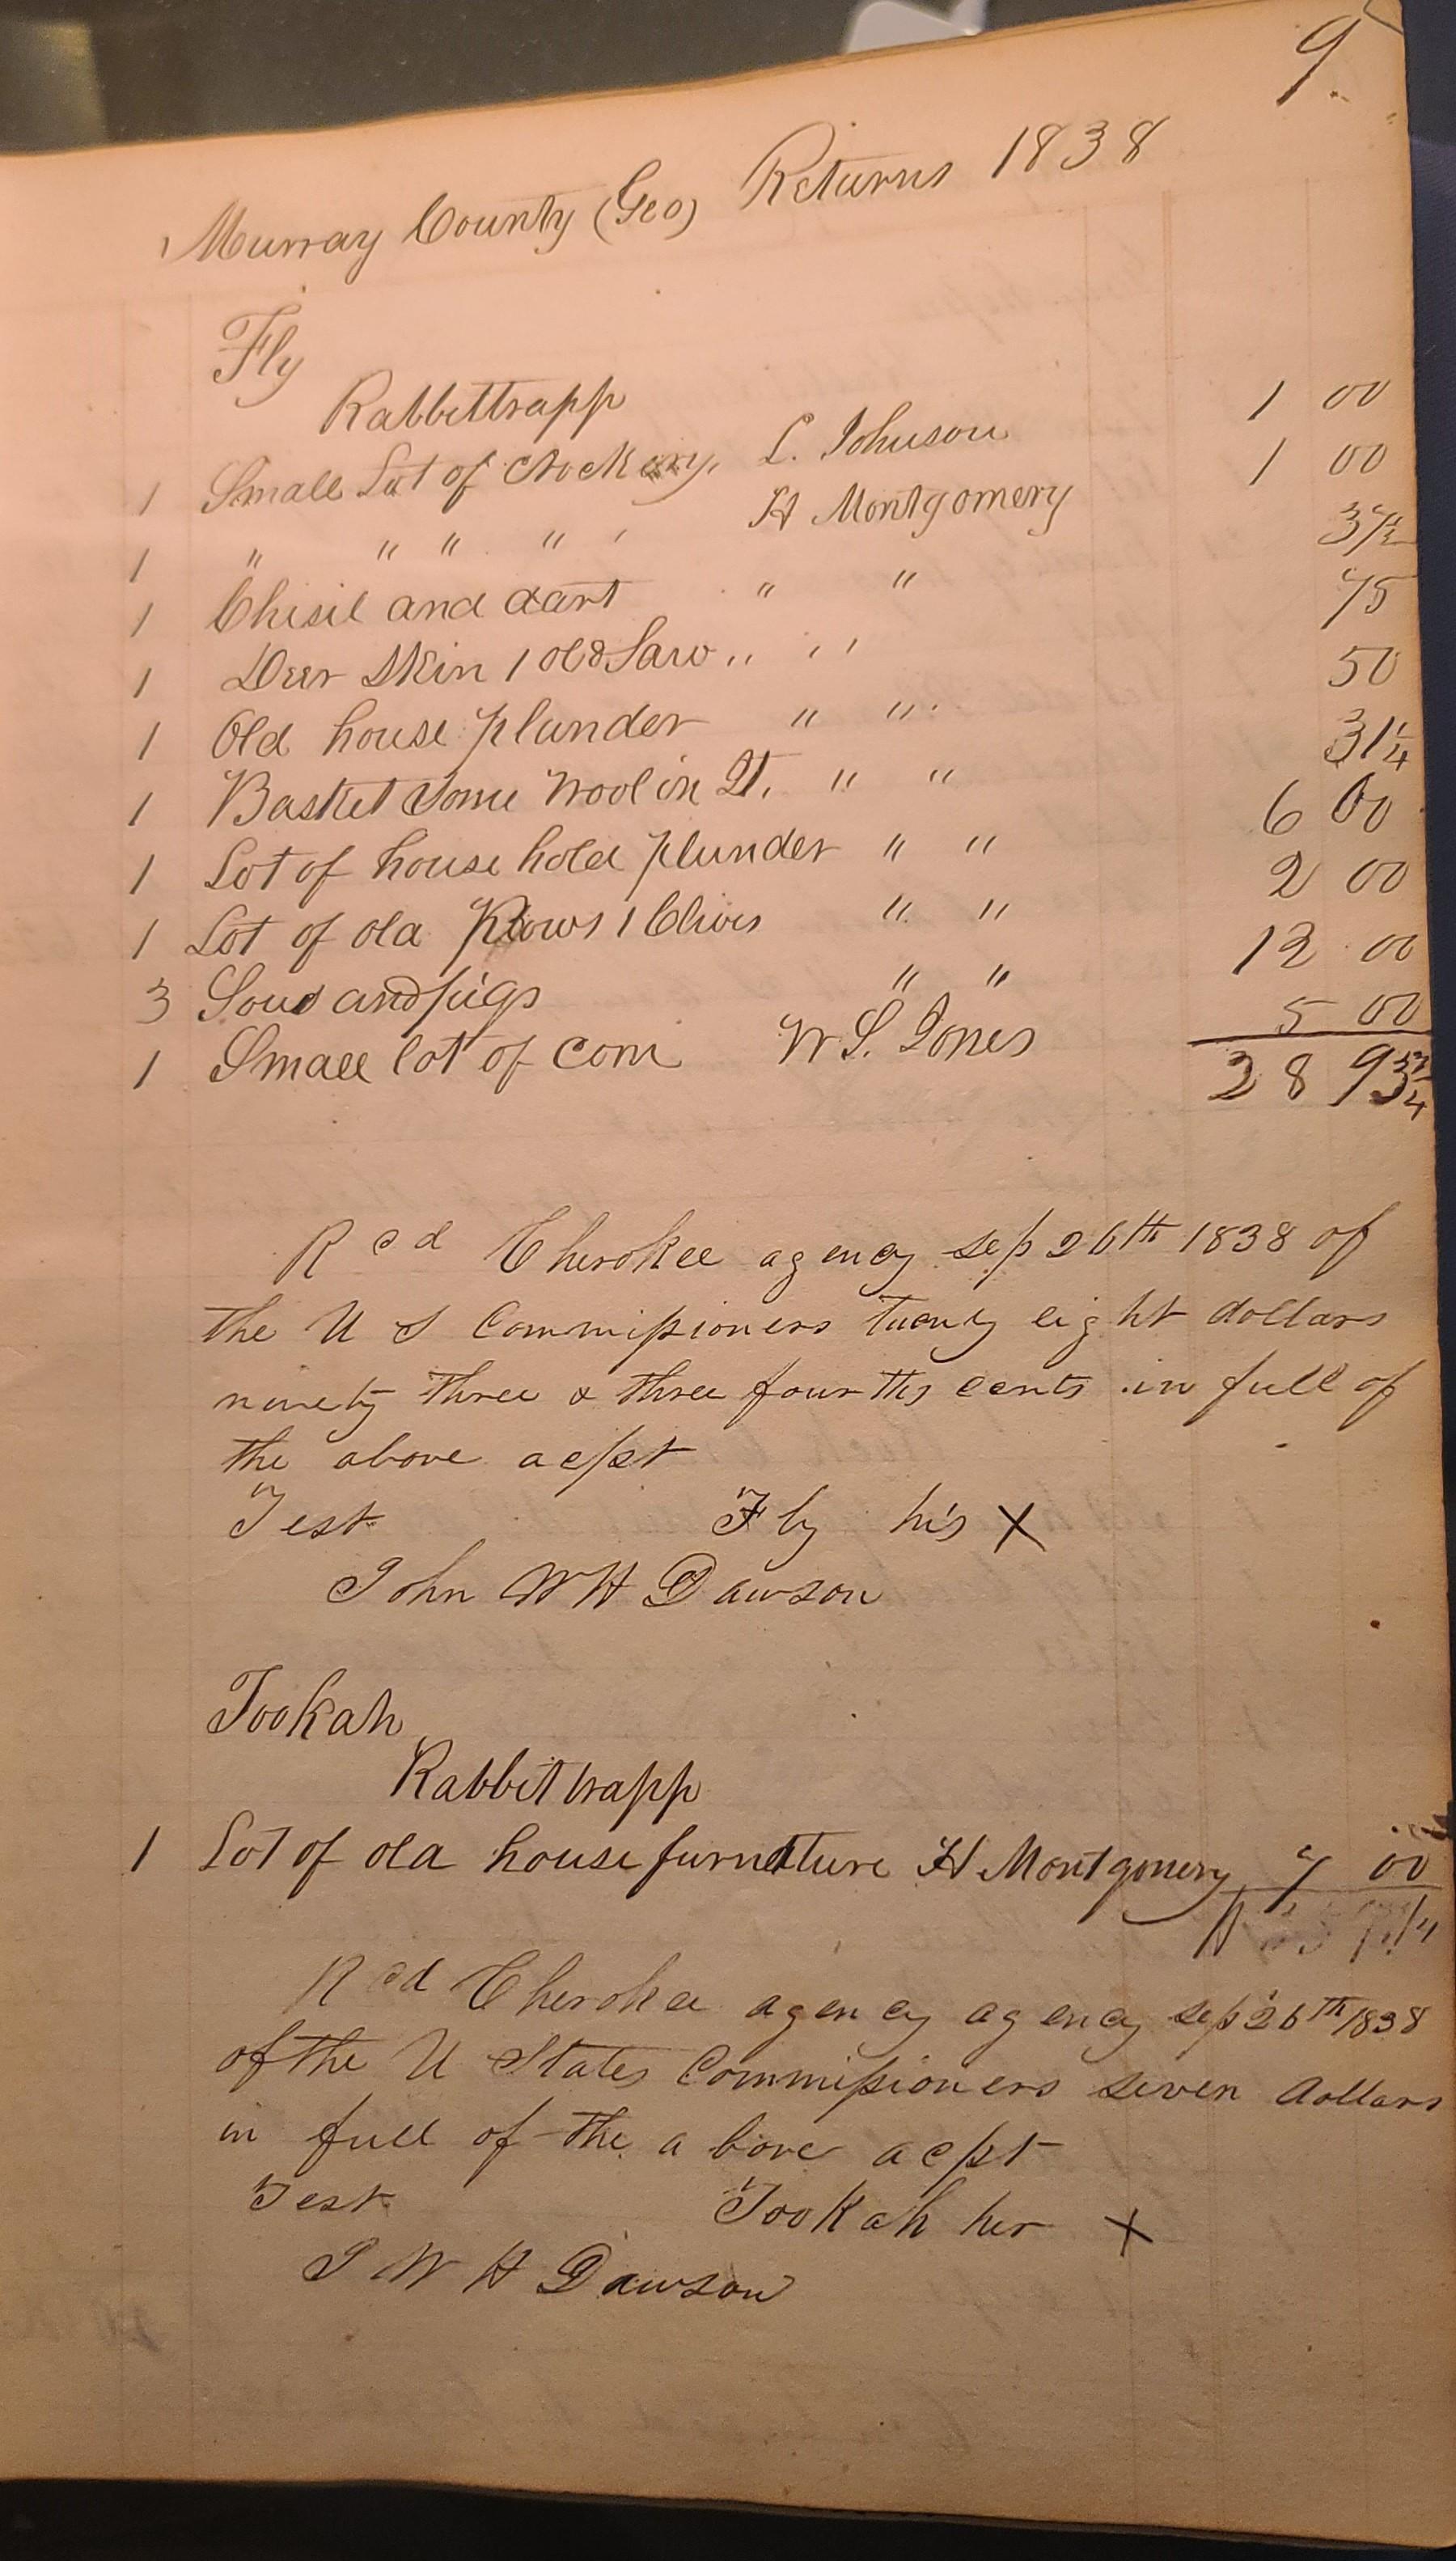 9.
Murray County (Geo) Returns 1838
Fly
Rabbittrapp
1 Small Lot of Crockery, L. Johnson 1 00
1 " " " " ' H Montgomery 1 00
1 Chisil and dart " " 37½
1 Deer Skin 1 old Saw " " 75
1 Old house plunder " " 50
1 Basket Some Wool in It. " " 31¼
1 Lot of house hold plunder " " 6 00
1 Lot of old Plows 1 Clivis " " 2 00
3 Sows and pigs " " 12 00
1 Small lot of corn W S. Jones 5 00
28 93¾
Recd Cherokee agency sep 26th 1838 of
the U S Commissioners twenty eight dollars
ninety three & three fourths cents in full of
the above acpt
Test Fly his X
John W H Dawson
Tookah
Rabbittrapp
1 Lot of old house furniture H Montgomery 7 00
Recd Cherokee agency agency sep 26th 1838
of the U States Commissioners seven dollars
in full of the a bove acpt
Test Tookah her X
J W H Dawson